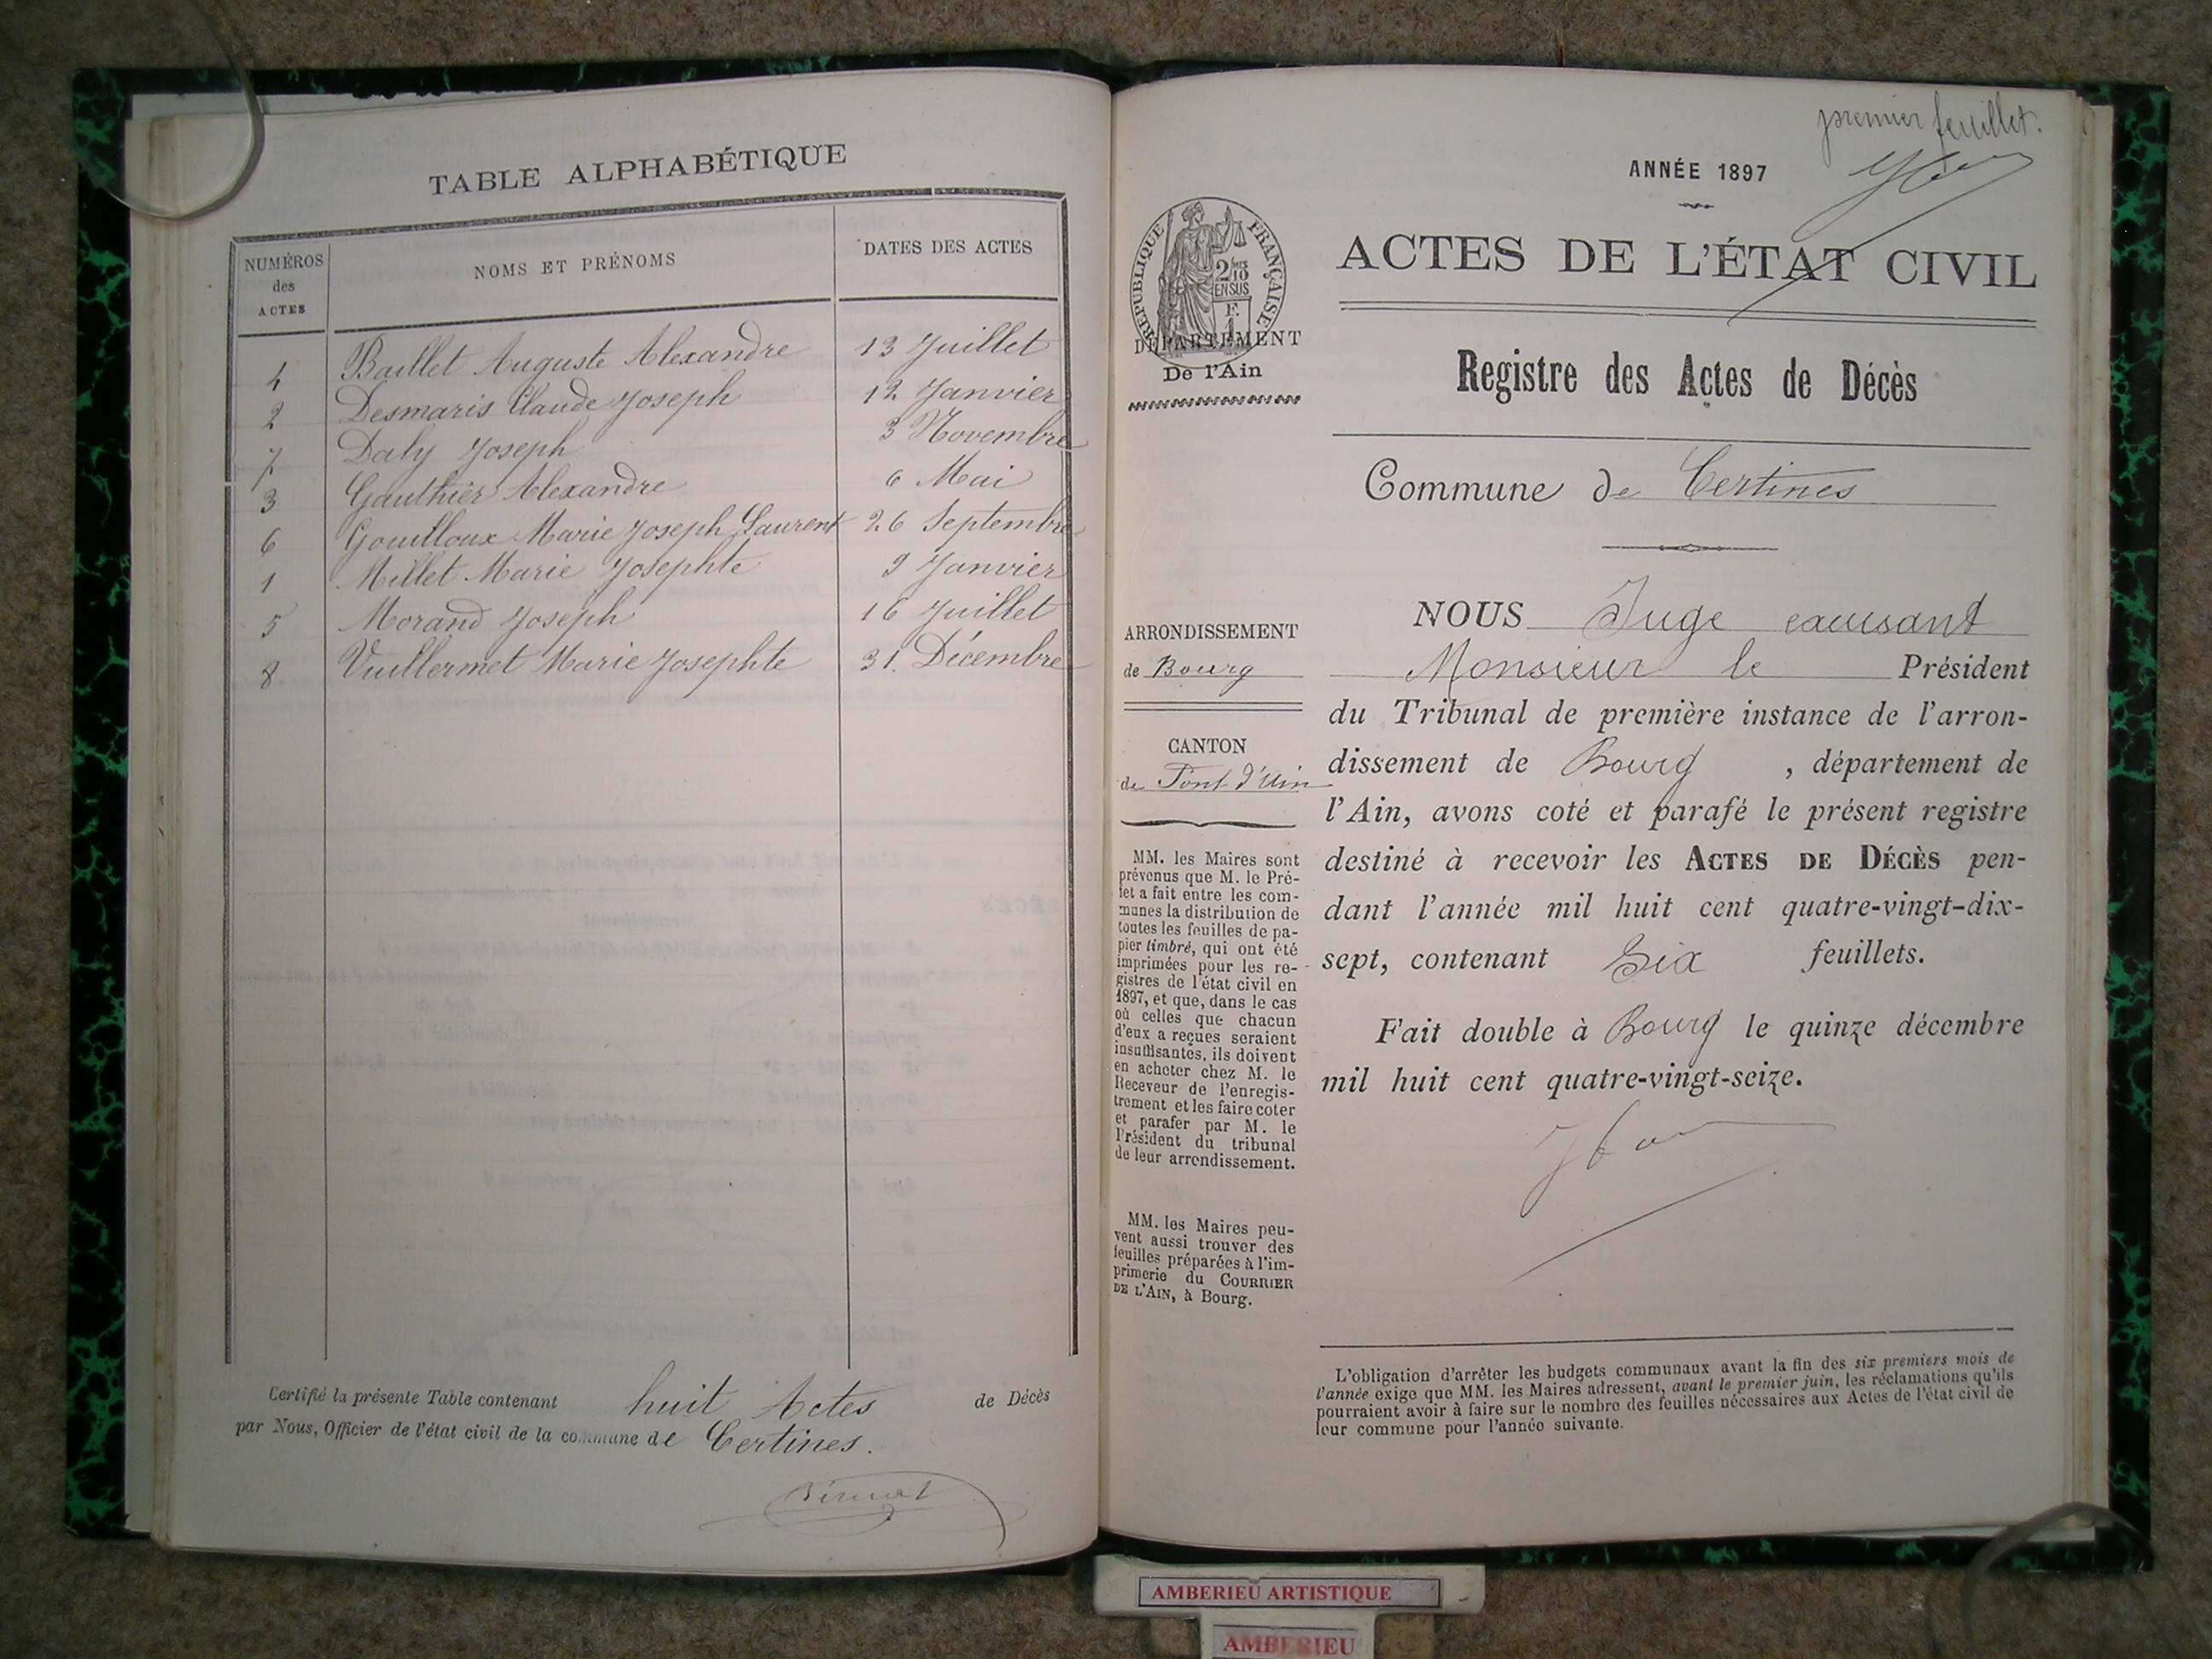 TABLE ALPHABÉTIQUE
NUMÉROS des ACTES
NOMS ET PRÉNOMS
DATES DES ACTES
4 Baillet Auguste Alexandre 13 Juillet
2 Desmaris Claude Joseph 12 Janvier
7 Daly Joseph 3 Novembre
3 Gauthier Alexandre 6 Mai
6 Gouilloux Marie Joseph Laurent 26 Septembre
1 Millet Marie Josephte 9 Janvier
5 Morand Joseph 16 Juillet
8 Vuillermet Marie Josephte 31. Décembre
Certifié la présente Table contenant huit Actes de Décès
par Nous, Officier de l'état civil de la commune de Certines.
premier feuillet.
ANNÉE 1897
ACTES DE L'ÉTAT CIVIL
RÉPUBLIQUE FRANÇAISE
2/10
EN SUS
F.
1
DÉPARTEMENT
De l'Ain
Registre des Actes de Décès
Commune de Certines
ARRONDISSEMENT
de Bourg
CANTON
de Pont d'Ain
MM. les Maires sont
prévenus que M. le Pré-
fet a fait entre les com-
munes la distribution de
toutes les feuilles de pa-
pier timbré, qui ont été
imprimées pour les re-
gistres de l'état civil en
1897, et que, dans le cas
où celles que chacun
d'eux a reçues seraient
insuffisantes, ils doivent
en acheter chez M. le
Receveur de l'enregis-
trement et les faire coter
et parafer par M. le
Président du tribunal
de leur arrondissement.
MM. les Maires peu-
vent aussi trouver des
feuilles préparées à l'im-
primerie du COURRIER
DE L'AIN, à Bourg.
NOUS Juge
Monsieur le Président
du Tribunal de première instance de l'arron-
dissement de Bourg , département de
l'Ain, avons coté et parafé le présent registre
destiné à recevoir les ACTES DE DÉCÈS pen-
dant l'année mil huit cent quatre-vingt-dix-
sept, contenant Six feuillets.
Fait double à Bourg le quinze décembre
mil huit cent quatre-vingt-seize.
L'obligation d'arrêter les budgets communaux avant la fin des six premiers mois de
l'année exige que MM. les Maires adressent, avant le premier juin, les réclamations qu'ils
pourraient avoir à faire sur le nombre des feuilles nécessaires aux Actes de l'état civil de
leur commune pour l'année suivante.
AMBERIEU ARTISTIQUE
AMBERIEU